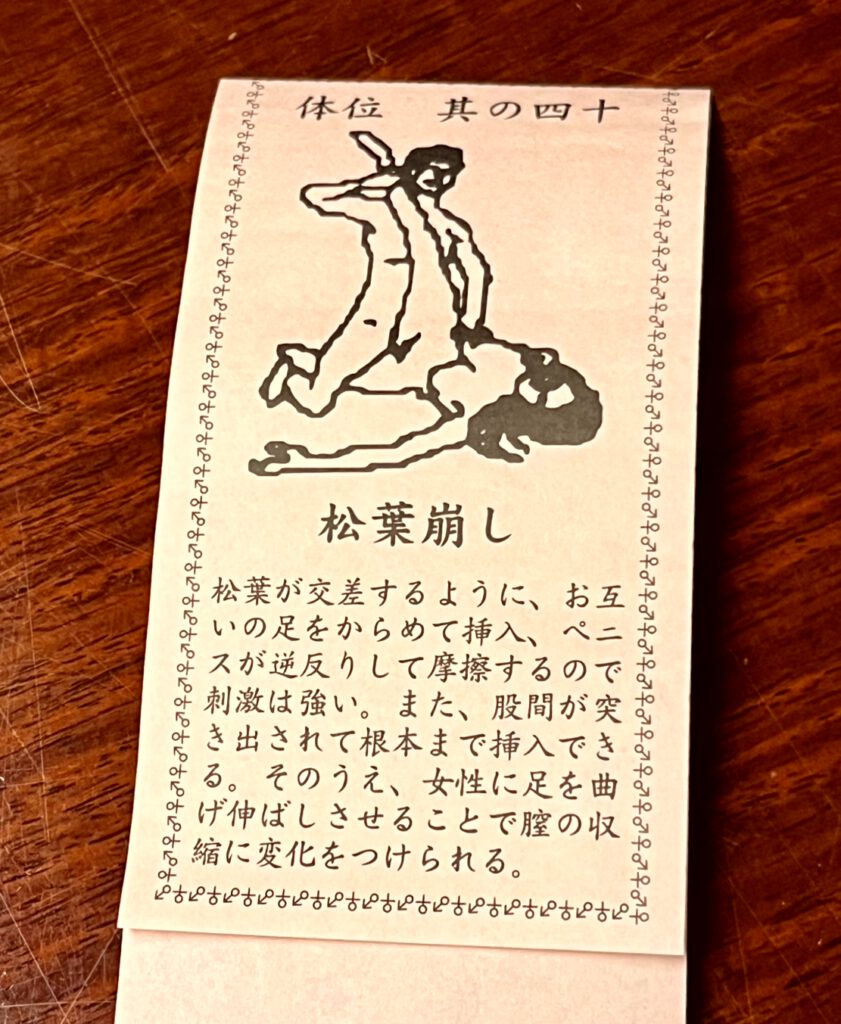 体位　其の四十
松葉崩し
松葉が交差するように、お互
いの足をからめて挿入、ペニ
スが逆反りして摩擦するので
刺激は強い。また、股間が突
き出されて根本まで挿入でき
る。そのうえ、女性に足を曲
げ伸ばしさせることで膣の収
縮に変化をつけられる。